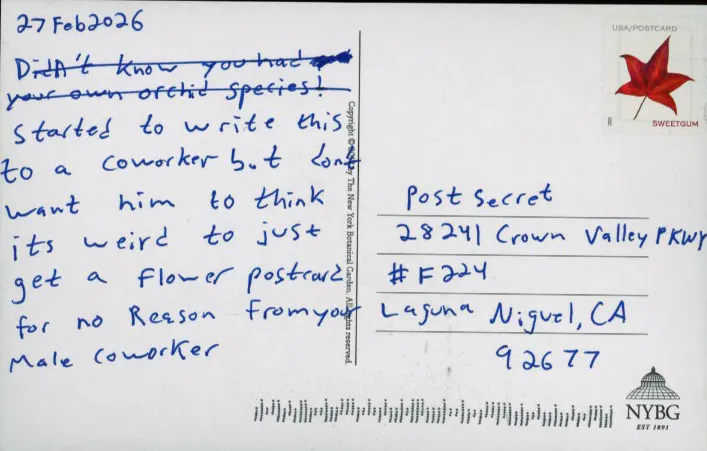 27 Feb 2026
Didn't know you had
your own orchid species!
Started to write this
to a coworker but dont
want him to think
its weird to just
get a flower postcard
for no Reason from your
Male coworker
Copyright © by The New York Botanical Garden. All rights reserved.
USA/POSTCARD
SWEETGUM
Post Secret
28241 Crown Valley PKWY
#F224
Laguna Niguel, CA
92677
NYBG
EST 1891